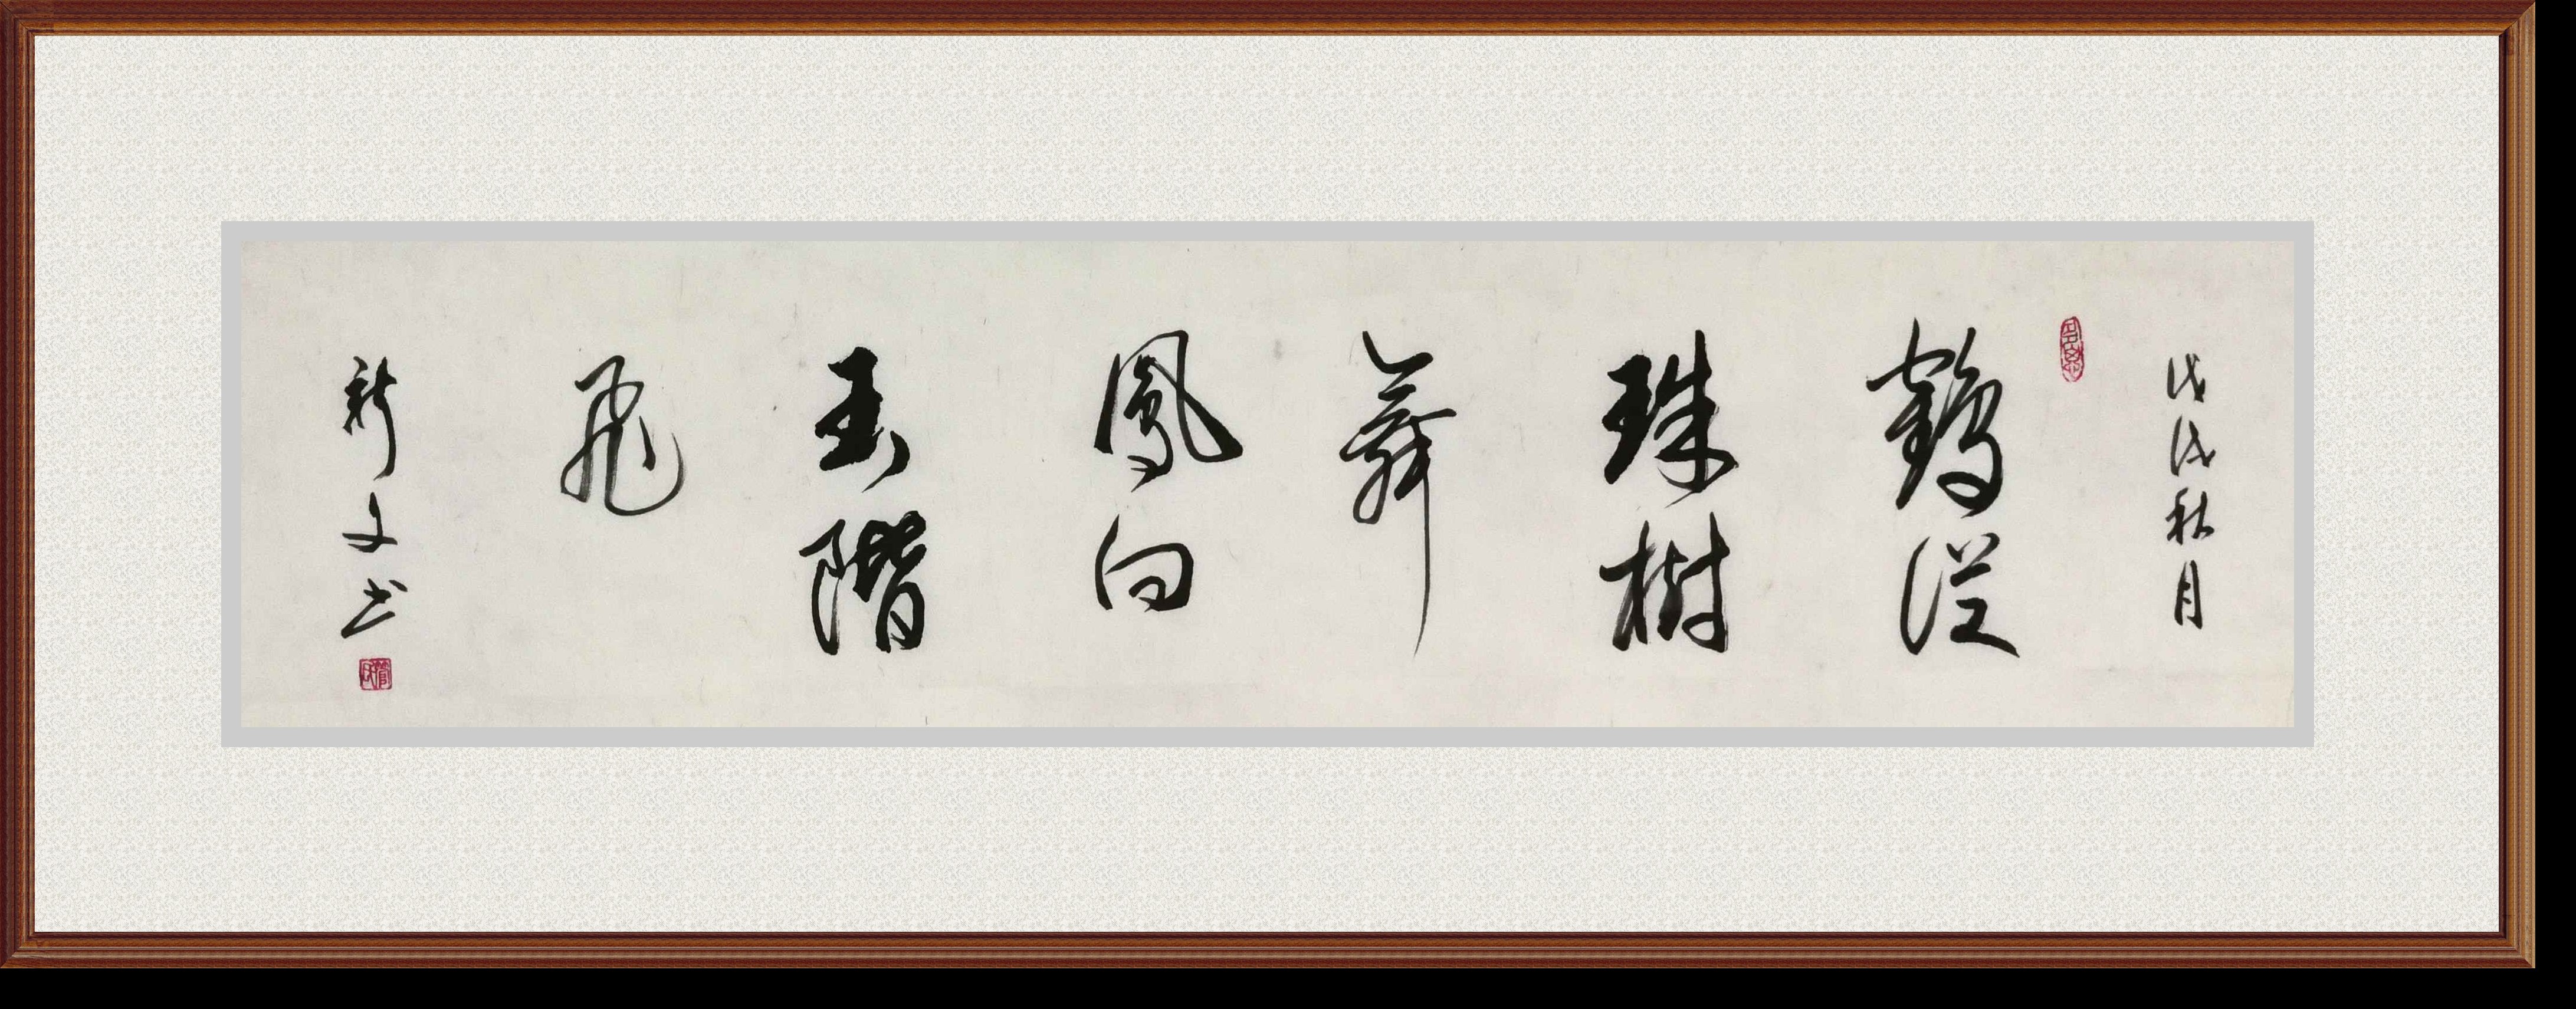 戊戌秋月
鶴從
珠樹
舞
鳳向
玉階
飛
新文书